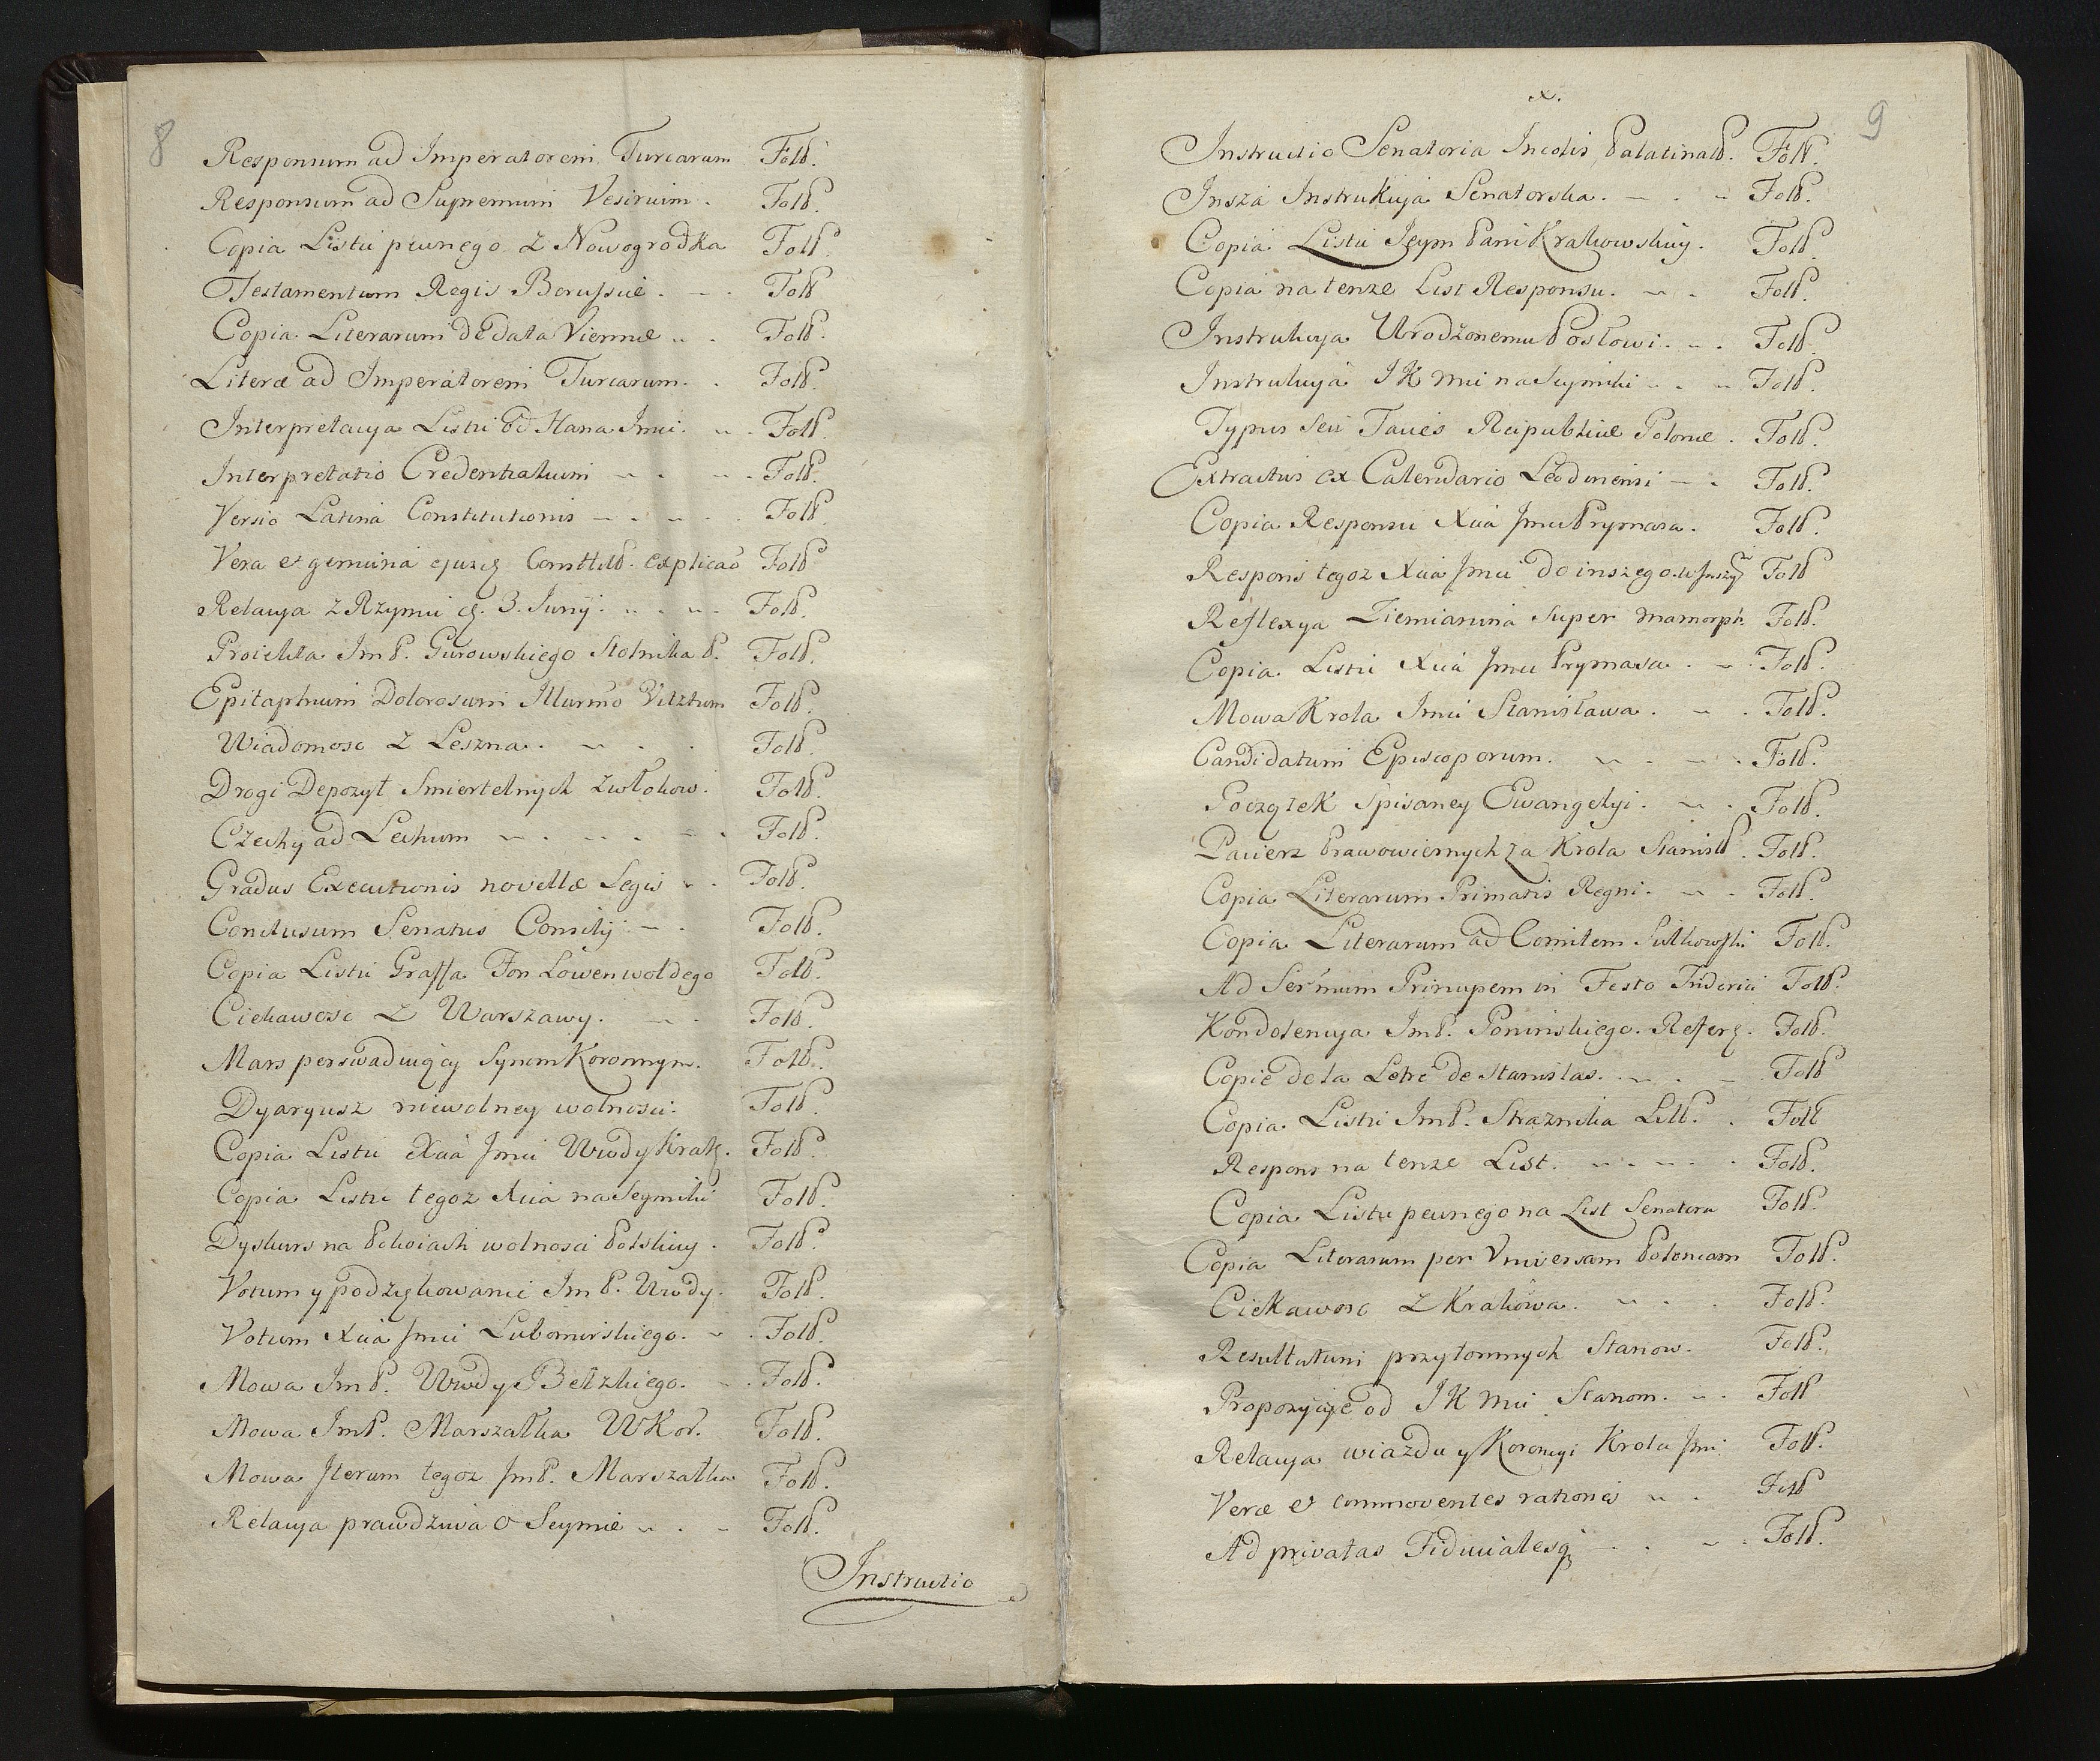 8
Responsum ad Imperatorem Turcarum Fol.
Responsum ad Supremum Vesirium. Fol.
Copia Listu pewnego z Nowogrodka Fol.
Testamentum Regis Borussiæ. Fol.
Copia Literarum de data Viennæ Fol.
Literæ ad Imperatorem Turcarum. Fol.
Interpretacya Listu od Hana Jmci. Fol.
Interpretatio Credentialium Fol.
Versio Latina Constitutionis Fol.
Vera et genuina ejuzq Constit. explicao Fol.
Relacya z Rzymu 3. Junÿ. Fol.
Proiekta ImP. Gurowskiego Stolnika P. Fol.
Epitaphium Dolorosum Illurmo Vitztum Fol.
Wiadomosc z Leszna. Fol.
Drogi Depozyt Smiertelnych zwłokow. Fol.
Czechy ad Lechum Fol.
Gradus Executionis novellæ Legis Fol.
Conclusum Senatus Consilij Fol.
Copia Listu Graffa Fon Lowenwoldego Fol.
Ciekawosc z Warszawy. Fol.
Mars perswaduiący Synom Koronnym. Fol.
Dyaryusz niewolney wolnosci. Fol.
Copia Listu Xcia Jmci Wwdy Krak. Fol.
Copia Listu tegoz Xcia na Seymiki Fol.
Dyskurs na Pokoiach wolnosci Polskiey. Fol.
Votum y podziękowanie ImP. Wwdy. Fol.
Votum Xcia Jmci Lubomirskiego. Fol.
Mowa ImP. Wwdy Bełzkiego. Fol.
Mowa ImP. Marszałka WKor. Fol.
Mowa Iterum tegoz ImP. Marszałka Fol.
Relacya prawdziwa o Seymie Fol.
Instructio
x.
9
Instructio Senatoria Incolis Palatinat. Fol.
Insza Instrukcya Senatorska. Fol.
Copia Listu Jeym Pani Krakowskiey. Fol.
Copia na tenze List Responsu. Fol.
Instrukcya Urodzonemu Posłowi. Fol.
Instrukcya JK Mci na Seymiki Fol.
Typus seu Facies Reipublicæ Polonæ. Fol.
Extractus ex Calendario Leodinensi Fol.
Copia Responsu Xcia Jmci Prymasa. Fol.
Respons tegoz Xcia Jmci do inszego Fol.
Reflexya Ziemianina super Fol.
Copia Listu Xcia Jmci Prymasa. Fol.
Mowa Krola Jmci Stanisława. Fol.
Candidatum Episcoporum. Fol.
Początek Spisaney Ewangelyi. Fol.
Pacierz Prawowiernych za Krola Stanisł. Fol.
Copia Literarum Primatis Regni. Fol.
Copia Literarum ad Comitem Sulkowski Fol.
Ad Ser'mum Principem in Festo Friderici Fol.
Kondolencya ImP. Poninskiego. Refer. Fol.
Copie de la Letre de Stanislas. Fol.
Copia Listu ImP. Straznika Lit. Fol.
Respons na tenze List. Fol.
Copia Listu pewnego na List Senatora Fol.
Copia Literarum per Vniversam Poloniam Fol.
Ciekawosc z Krakowa. Fol.
Resultatum przytomnych Stanow. Fol.
Propozycye od JK Mci Stanom. Fol.
Relacya wiazdu y Koroncyi Krola Jmi Fol.
Veræ et commoventes rationes Fol.
Ad privatas Fiducialesq Fol.